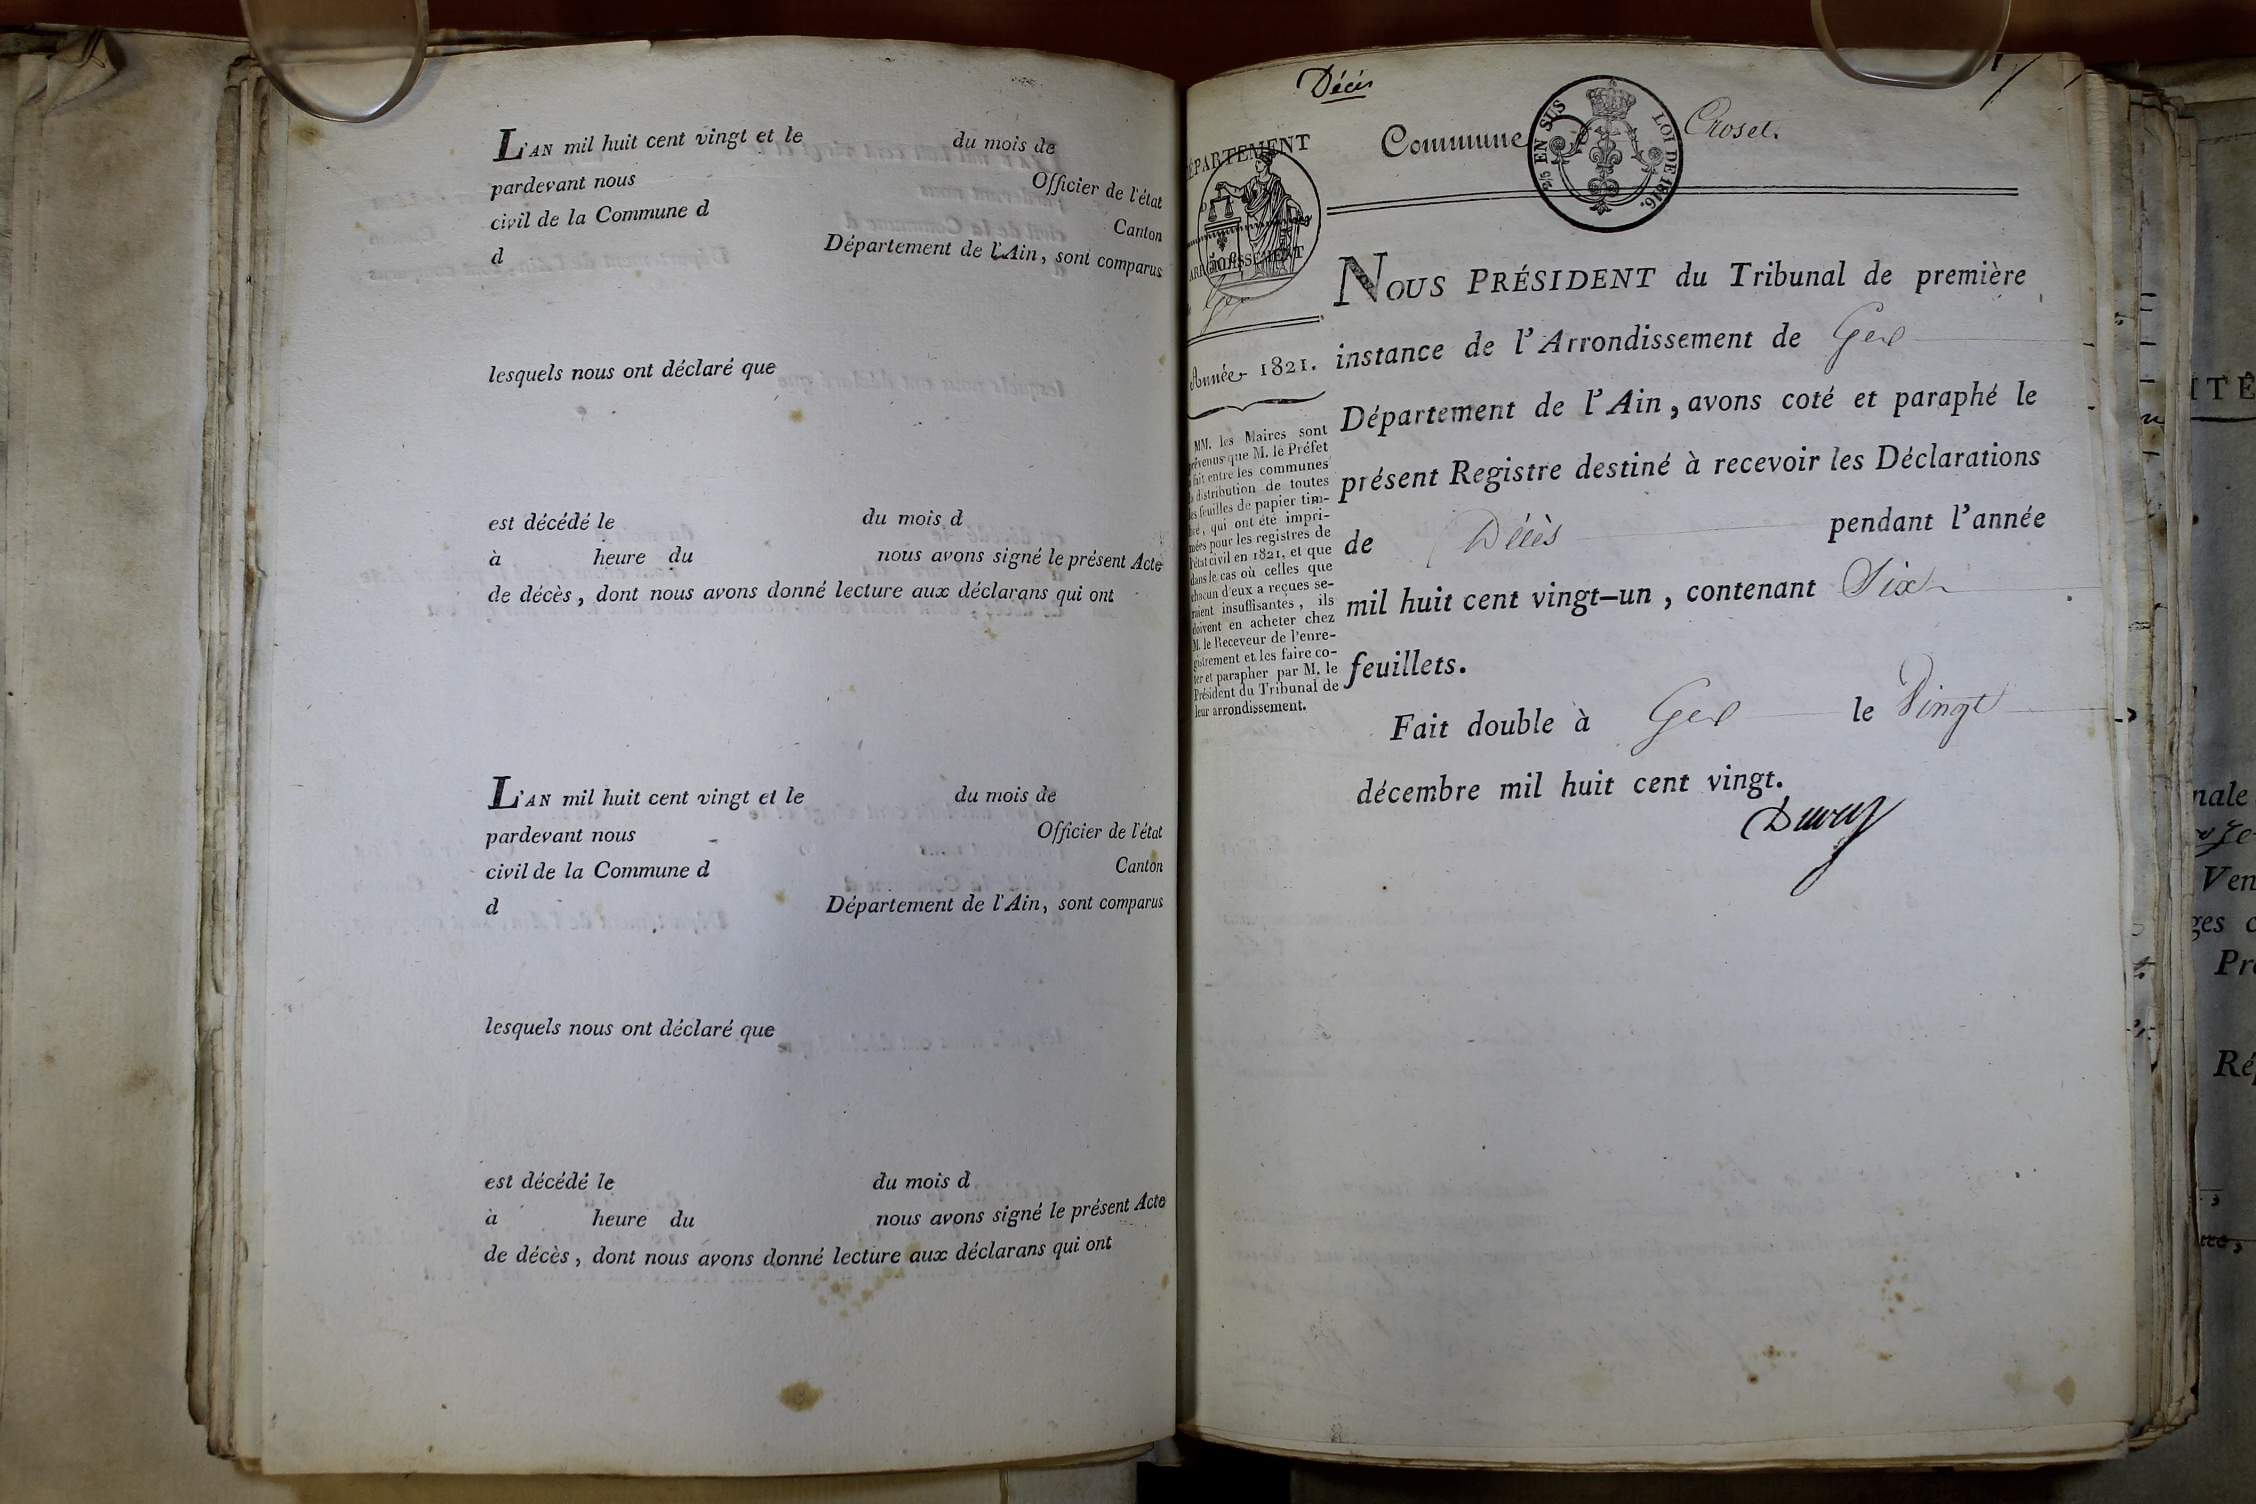 L'AN mil huit cent vingt et le du mois de
pardevant nous Officier de l'état
civil de la Commune d Canton
d Département de l'Ain, sont comparus
lesquels nous ont déclaré que
est décédé le du mois d
à heure du nous avons signé le présent Acte
de décès, dont nous avons donné lecture aux déclarans qui ont
L'AN mil huit cent vingt et le du mois de
pardevant nous Officier de l'état
civil de la Commune d Canton
d Département de l'Ain, sont comparus
lesquels nous ont déclaré que
est décédé le du mois d
à heure du nous avons signé le présent Acte
de décès, dont nous avons donné lecture aux déclarans qui ont
Décès
1
DÉPARTEMENT
Commune Croset.
EN SUS LOI DE 1816.
ARRONDISSEMENT
Gex
Année 1821.
MM. les Maires sont
prévenus que M. le Préfet
a fait entre les communes
la distribution de toutes
les feuilles de papier tim-
bré, qui ont été impri-
mées pour les registres de
l'état civil en 1821, et que
dans le cas où celles que
chacun d'eux a reçues se-
raient insuffisantes, ils
doivent en acheter chez
M. le Receveur de l'enre-
gistrement et les faire co-
ter et parapher par M. le
Président du Tribunal de
leur arrondissement.
NOUS PRÉSIDENT du Tribunal de première
instance de l'Arrondissement de Gex
Département de l'Ain, avons coté et paraphé le
présent Registre destiné à recevoir les Déclarations
de Décès pendant l'année
mil huit cent vingt-un, contenant Six
feuillets.
Fait double à Gex le Vingt
décembre mil huit cent vingt.